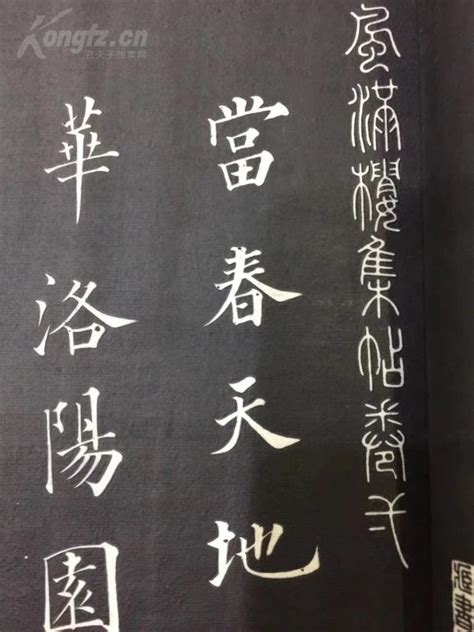 Kongfz.cn
孔夫子拍卖网
風滿樓集帖卷
當春天地
華洛陽園